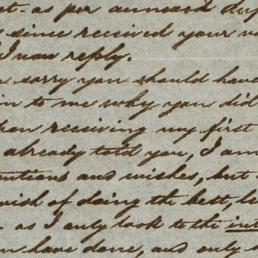 ot - as per annexed du
since received your
I now reply.
sorry you should have
in to me why you did
pon receiving my first
already told you, I am
ntions and wishes, but
wish of doing the best, be
- as I only look to the int
have done, and only